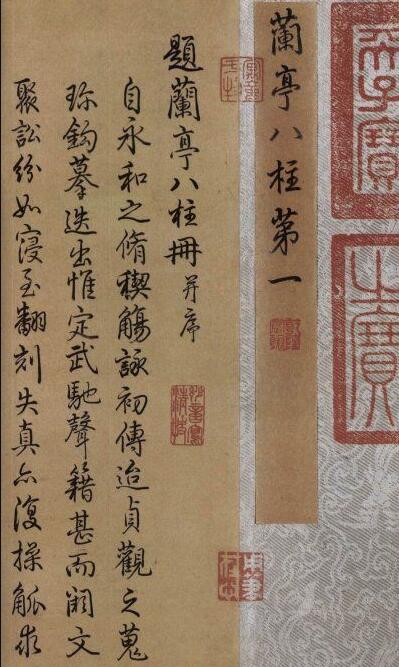 蘭亭八柱第一
題蘭亭八柱冊并序
自永和之脩稧觴詠初傳迨貞觀之蒐
珎鉤摹迭出惟定武馳聲籍甚而闕文
聚訟紛如寖至翻刻失真亦復操觚求